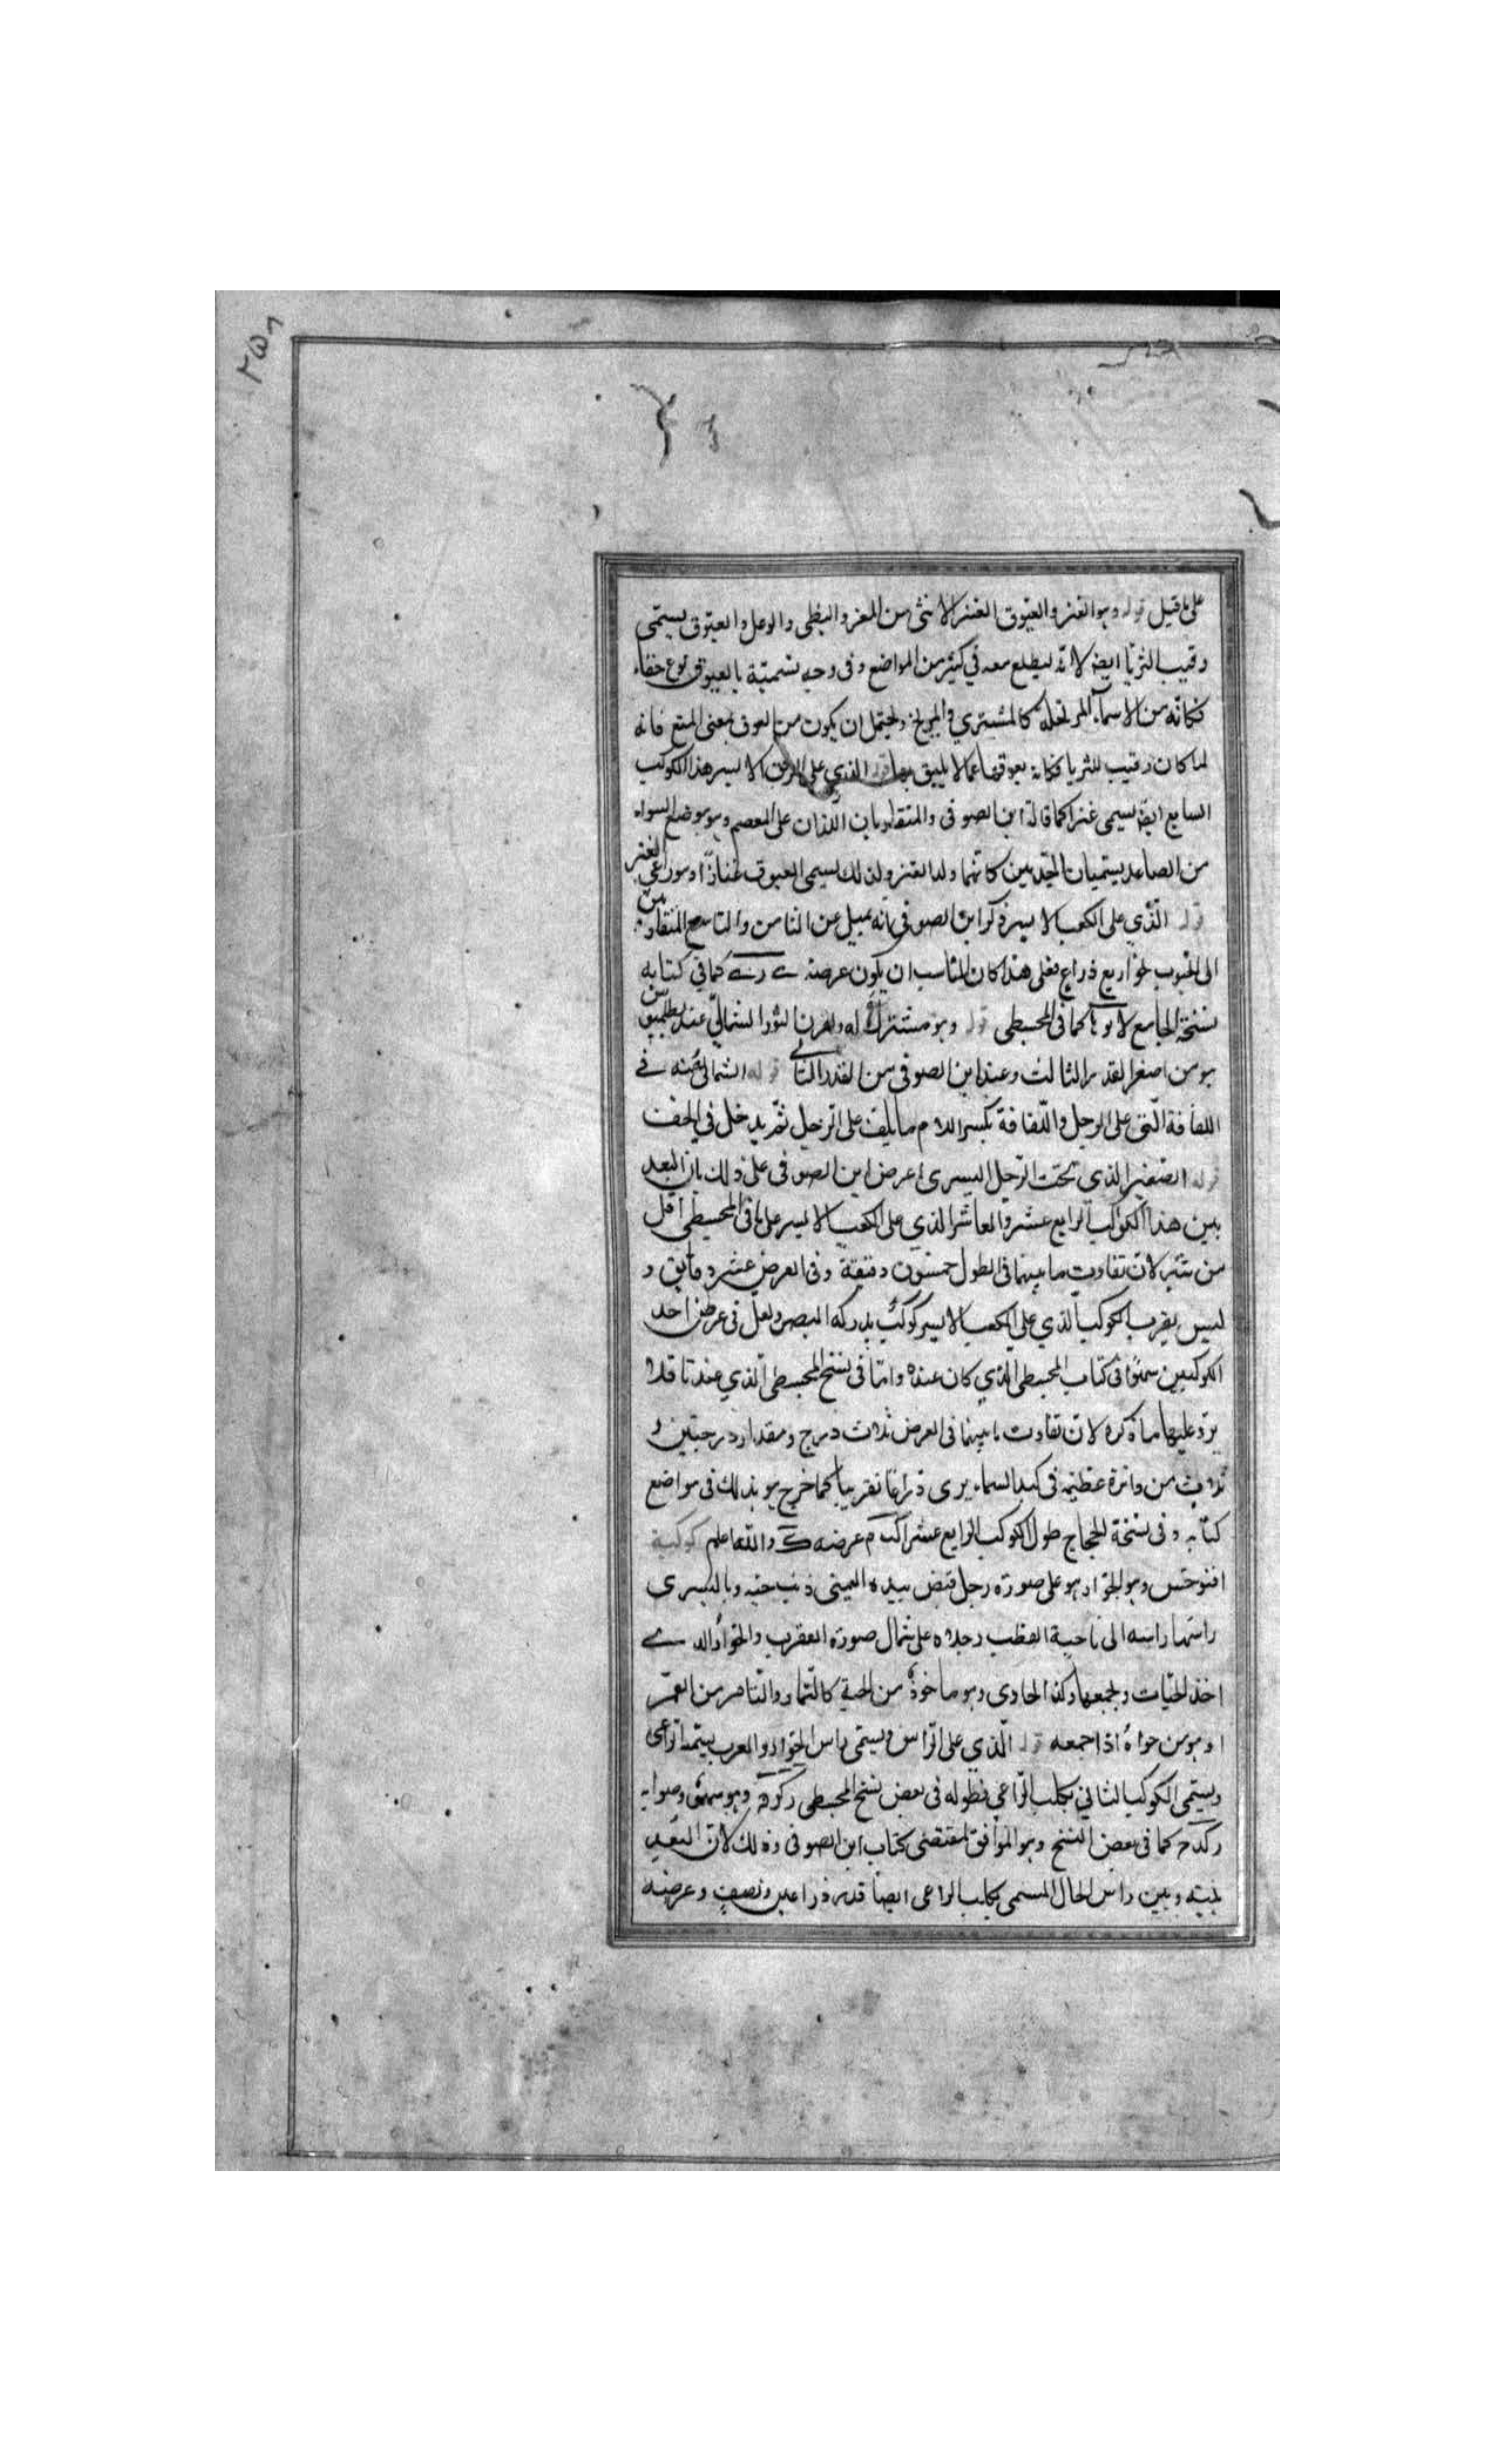 ٢٥٦
على ما قيل قوله وهو العنز والعيوق العنز الانثى من المعز والظبى والوعل والعيوق يسمى
رقيب الثريا ايضا لانه يطلع معه في كثير من المواضع وفى وجه تسميته بالعيوق نوع خفاء
فكانه من الاسماء المرتجلة كالمشترى والمريخ ويحتمل ان يكون من العوق بمعنى المنع فانه
لما كان رقيب للثريا فكانه يعوقها عما لا يليق بها قوله الذي على المرفق الايسر هذا الكوكب
السابع ايضا يسمى عنزا كما قاله ابن الصوفى والمتقاربان اللذان على المعصم وهو موضع السوار
من الصاعد يسميان الجديين كانهما ولدا العنز ولذلك يسمى العيوق عنازا وراعى العنز
قوله الذي على الكعب الايسر ذكر ابن الصوفى بانه يميل عن الثامن والتاسع المتقاربين
الى الجنوب نحو اربع ذراع فعلى هذا كان المناسب ان يكون عرضه كما في كتابه
نسخة الجامع لا كما فى المجسطى قوله وهو مشترك له ولقرن الثور الشمالى عند بطلميوس
هو من اصغر القدر الثالث وعند ابن الصوفى من القدر الثانى قوله الشمالى عنه فے
اللفافة التى على الرجل واللفافة بكسر اللام ما يلف على الرجل ثم يدخل في الخف
قوله الصغير الذى تحت الرجل اليسرى اعرض ابن الصوفى على ذلك بان البعد
بين هذا الكوكب الرابع عشر والعاشر الذي على الكعب الايسر على ما فى المجسطى اقل
من شبر لان تفاوت ما بينهما فى الطول خمسون دقيقة وفى العرض عشر دقايق و
ليس بقرب الكوكب الذي على الكعب الايسر كوكب يدركه البصر ولعل فى عرض احد
الكوكبين سهوا فى كتاب المجسطى الذي كان عنده واما فى نسخ المجسطى الذي عندنا فلا
يرد عليها ما ذكره لان تفاوت ما بينهما فى العرض ثلاث درج ومقدار درجتين و
ثلاث من دائرة عظيمة فى كبد السماء يرى ذراعا تقريبا كما خرج هو بذلك فى مواضع
كتابه وفى نسخة الحجاج طول الكوكب الرابع عشر اكب م عرضه ك والله اعلم كوكبة
افنوخس وهو الحواء هو على صورة رجل قبض بيده اليمنى ذنب حية وباليسرى
راسها راسه الى ناحية القطب رجلاه على شمال صورة العقرب والحواء الذے
اخذ الحيات ويجمعها وكذا الحاوى وهو ماخوذ من الحية كالتمار والتامر من التمر
او هو من حواه اذا جمعه قوله الذي على الراس ويسمى راس الحواء والعرب يسميه الراعى
ويسمى الكوكب الثانى بكلب الراعى فطوله فى بعض نسخ المجسطى وهو سهو وصوابه
ركدم كما فى بعض النسخ وهو الموافق لمقتضى كتاب ابن الصوفى وذلك لان البعد
بينه وبين راس الحال المسمى بكلب الراعى ايضا قدر ذراعين ونصف وعرضه